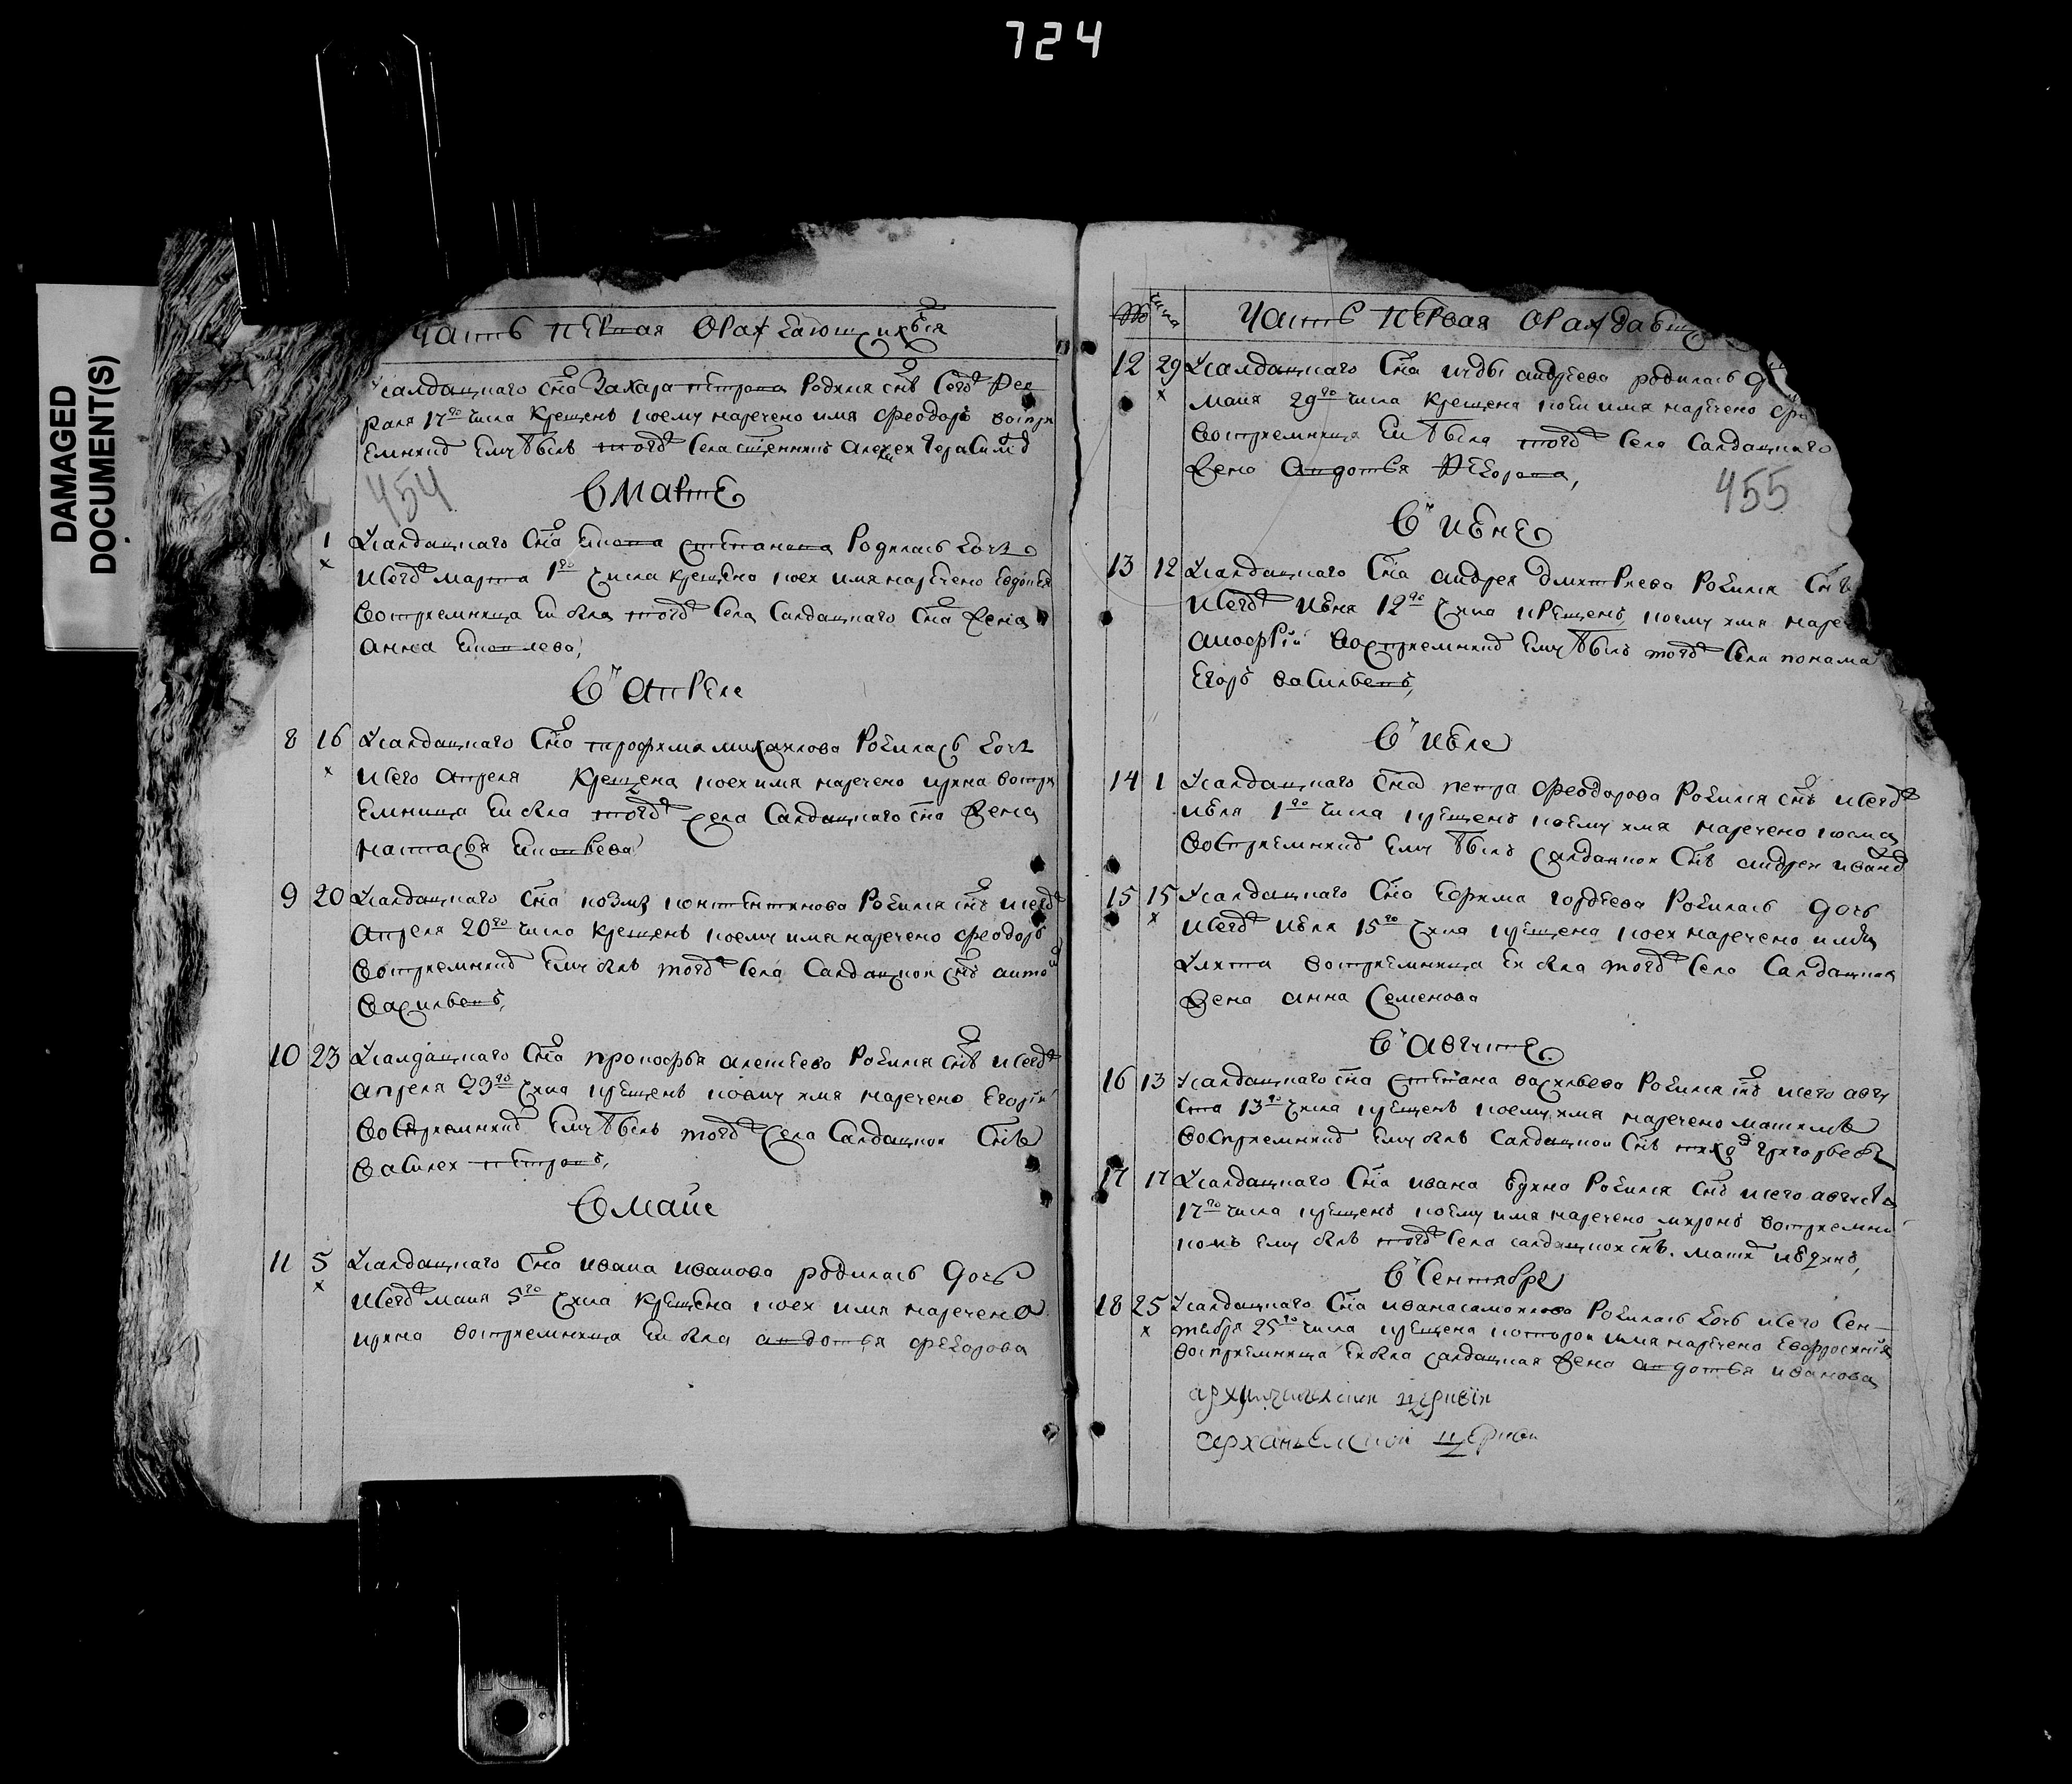 724
DAMAGED
DOCUMENT(S)
Часть первая ораждающихся
Усалдацкаго сна Захара Петрова родился снъ сегож фев
раля 17го числа крещенъ коему наречено имя Феодоръ воспри
емникъ ему былъ тогож села сщенникъ Алексеи Герасимов
454
В марте
1 Усалдацкаго сна степанова родилась дочь
исегож марта 1го числа крещена коеи имя наречено Евдокия
восприемница еи была тогож села салдацкаго сна жена
Анна
В апреле
8 16 Усалдацкаго сна Трофима Михаилова родилась дочь
исего апреля крещена коеи имя наречено Ирина воспри
емница еи была тогож села салдацкаго сна жена
Настасья
9 20 Усалдацкаго сна Козмы Констентинова родился снъ исегож
апреля 20го числа крещенъ коему имя наречено Феодоръ
восприемникъ ему былъ тогож села салдацкои снъ Антон
Васильевъ,
10 23 Усалдацкаго сна Прокофья Алексеева родился снъ исегож
апреля 23го числа крещенъ коему имя наречено Егории
восприемникъ ему былъ тогож села салдацкои снъ
Василеи Петровъ,
В майе
11 5 Усалдацкаго сна Ивана Иванова родилась дочь
исегож маия 5го числа крещена коеи имя наречено
Ирина восприемница еи была Авдотья Федорова
№ числа Часть первая ораждающ
12 29 Усалдацкаго сна Андреева родилась до
маия 29го числа крещена коеи имя наречено
восприемница еи была тогож села салдацкаго
жена Авдотья Федорова,
455
В июне
13 12 Усалдацкаго сна Андрея Дмитриева родился снъ
исегож июня 12го числа крещенъ, коему имя нареч
восприемникъ ему былъ тогож села понама
Егоръ Васильевъ,
В июле
14 1 Усалдацкаго сна Петра Феодорова родился снъ исегож
июля 1го числа крещенъ коему имя наречено Косма
восприемникъ ему былъ салдацкои снъ Андреи Иванов
15 15 Усалдацкаго сна Ефрима Гордеева родилась дочь
исегож июля 15го числа крещена коеи наречено имя
Улита восприемница еи была тогож села салдацкая
жена Анна Семенова
В августе
16 13 Усалдацкаго сна Степана Васильева родился снъ исего авгу
ста 13го числа крещенъ коему имя наречено Максимъ
восприемникъ ему былъ салдацкои снъ Григорьевъ
17 17 Усалдацкаго сна Ивана Юдина родился снъ исего августа
17го числа крещенъ коему имя наречено Миронъ восприемни
комъ ему былъ тогож села салдацкои снъ. Юдинъ,
В сентябре
18 25 Усалдацкаго сна Ивана Самоилова родилась дочь исего сен-
тября 25го числа крещена которои имя наречено Евфросиния
восприемница еи была салдацкая жена Авдотья Иванова
церкви
Арханьелской церкви